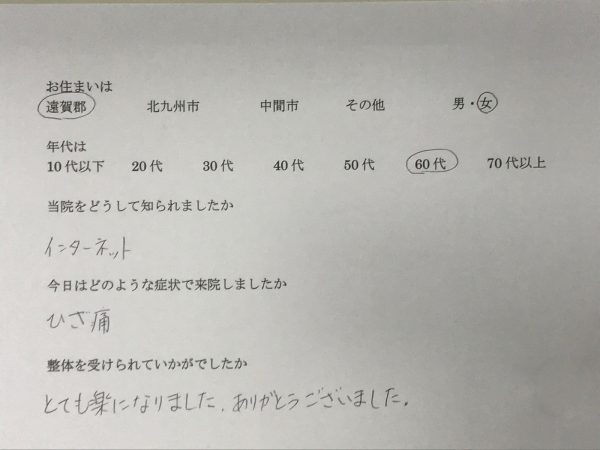 お住まいは
遠賀郡 北九州市 中間市 その他 男・女
年代は
10代以下 20代 30代 40代 50代 60代 70代以上
当院をどうして知られましたか
インターネット
今日はどのような症状で来院しましたか
ひざ痛
整体を受けられていかがでしたか
とても楽になりました。ありがとうございました。